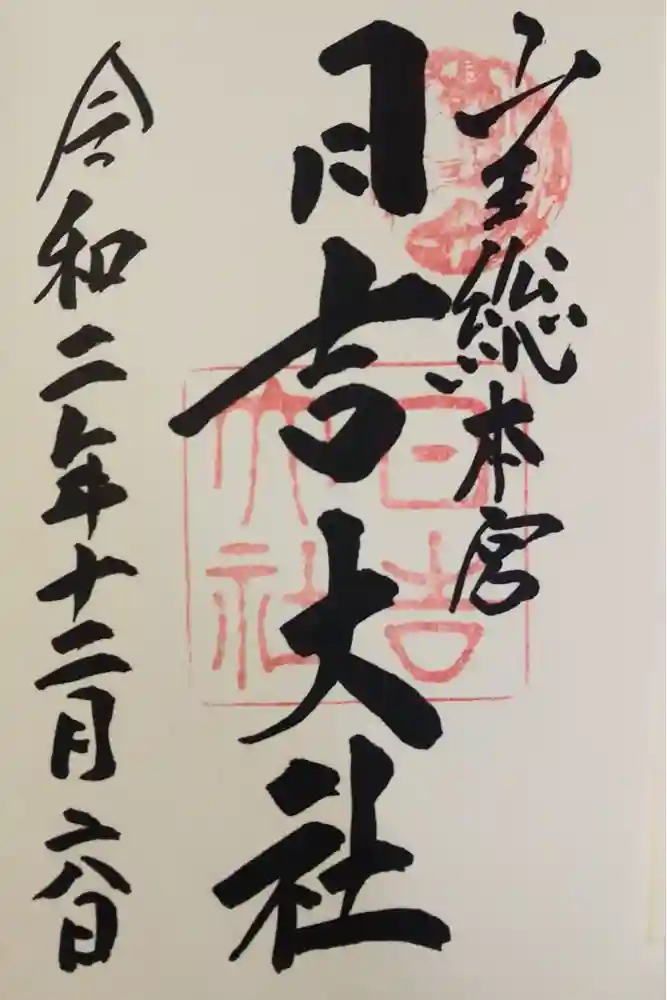 山王総本宮
日吉大社
令和二年十二月六日
日吉
大社